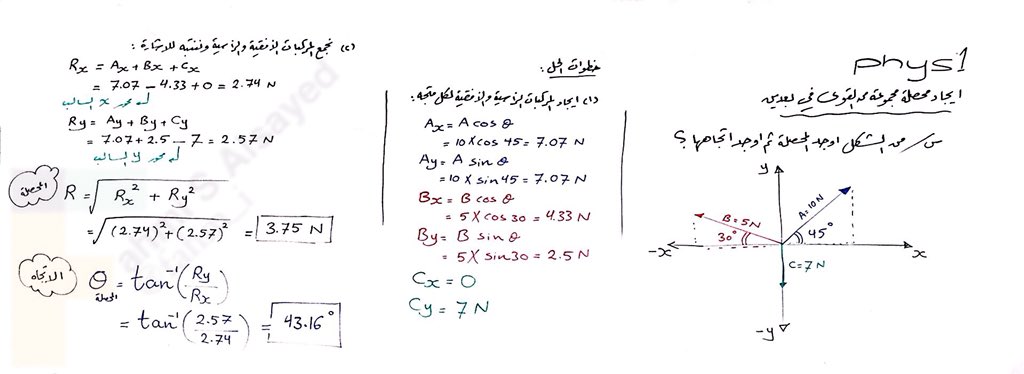 phys1
ايجاد محصلة مجموعة من القوى في بعدين
س/ من الشكل اوجد المحصلة ثم اوجد اتجاهها ؟
y
B=5N
A=10N
30°
45°
-x
x
C=7N
-y
خطوات الحل :
(1) ايجاد المركبات الرأسية والأفقية لكل متجه :
Ax = A cos θ
= 10 × cos 45 = 7.07 N
Ay = A sin θ
= 10 × sin 45 = 7.07 N
Bx = B cos θ
= 5 × cos 30 = 4.33 N
By = B sin θ
= 5 × sin 30 = 2.5 N
Cx = 0
Cy = 7 N
(2) نجمع المركبات الأفقية والرأسية وننتبه للاشارة :
Rx = Ax + Bx + Cx
= 7.07 - 4.33 + 0 = 2.74 N
محور x السالب
Ry = Ay + By + Cy
= 7.07 + 2.5 - 7 = 2.57 N
محور y السالب
المحصلة
R = √(Rx² + Ry²)
= √((2.74)² + (2.57)²) = 3.75 N
الاتجاه
θ المحصلة = tan⁻¹(Ry/Rx)
= tan⁻¹(2.57/2.74) = 43.16°